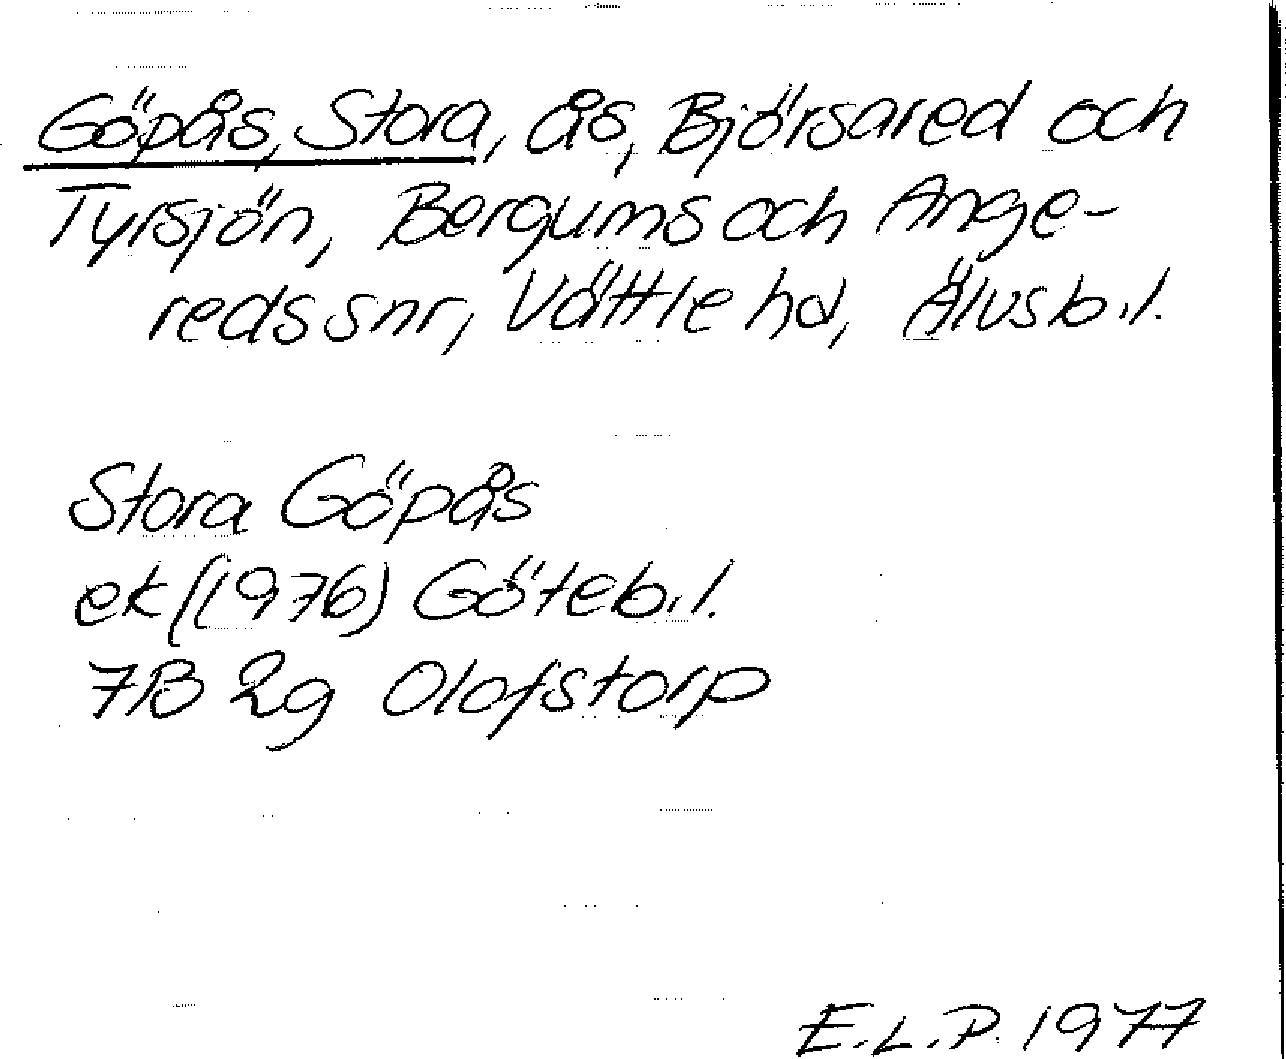 Göpås, Stora, ås, Björsared och
Tyrsjön, Bergums och Ange-
reds snr, Vättle hd, Älvsb.l.
Stora Göpås
ek (1976) Göteb.l.
7B 2g Olofstorp
E.L.P. 1977